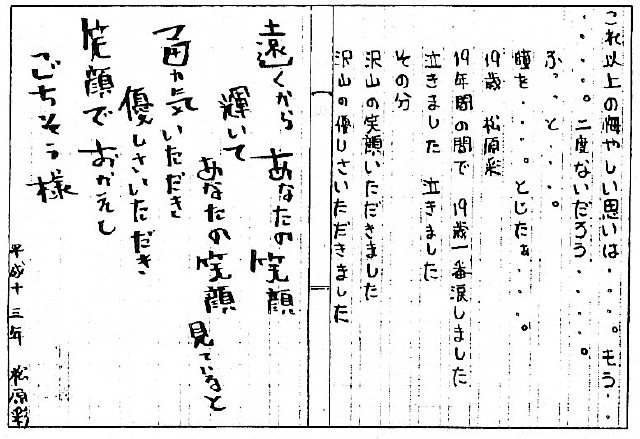 これ以上の悔やしい思いは・・・。もう・・
・・・・。二度ないだろう・・・・。
ふ・・と・・・。
瞳を・・・。とじたぁ・・。
19歳 松原彩
19年間の間で 19歳一番涙しました
泣きました 泣きました
その分
沢山の笑顔いただきました
沢山の優しさいただきました
遠くから あなたの笑顔
輝いて あなたの笑顔 見ていると
勇気いただき
優しさいただき
笑顔で おかえし
ごちそう様
平成十三年 松原彩